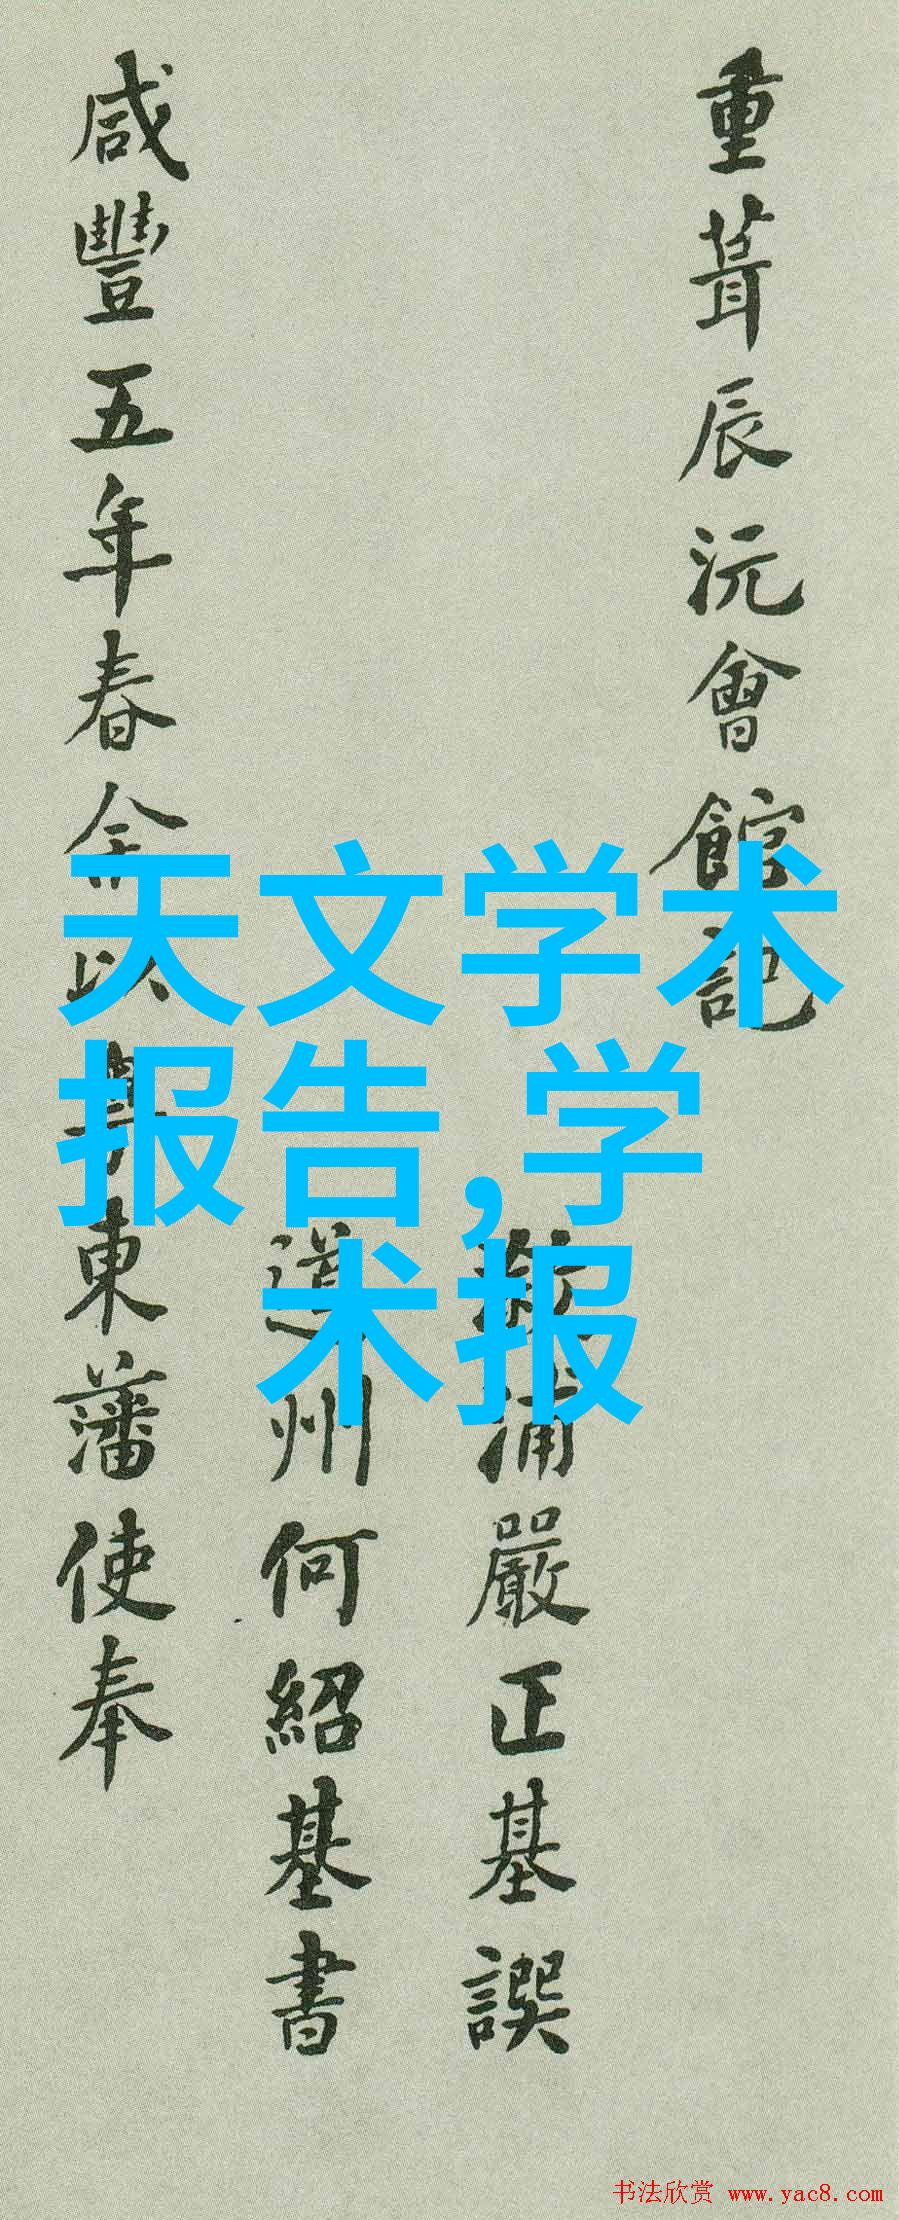 重葺辰沅會館記
浦嚴正基譔
道州何紹基書
咸豐五年春余以東藩使奉
天文学术
报告,学
术报
书法欣赏 www.yac8.com